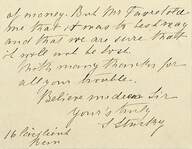 of money. But Mr Tavestock
me that it was to be
and that we are sure that
it will not be lost
With many thanks for
all your trouble.
Believe me dear Sir
yours truly
S Stuckey
16